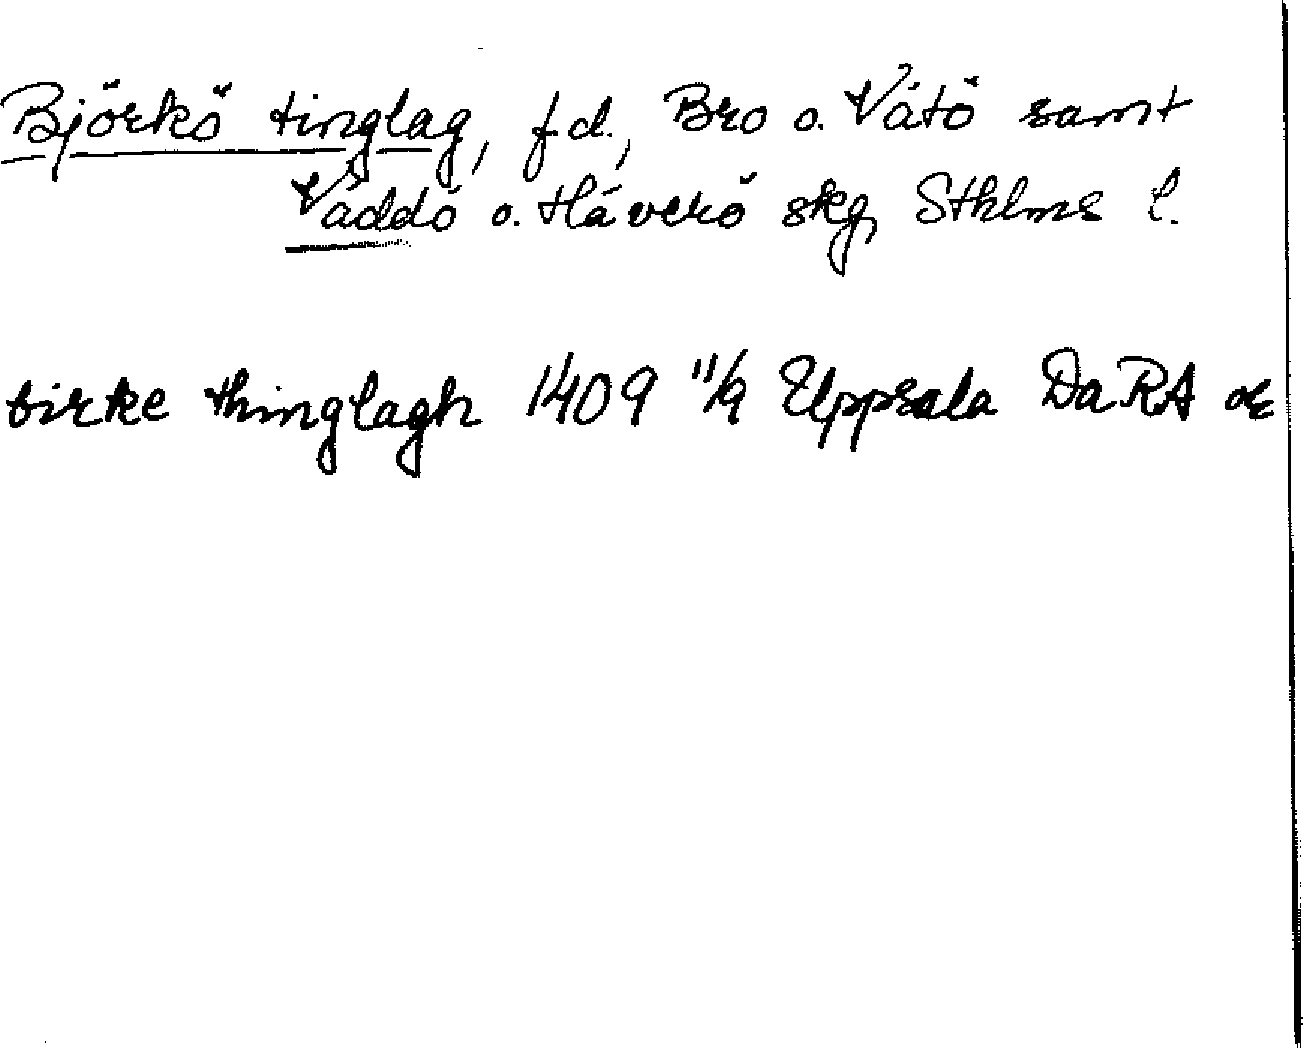 Björkö tinglag, f.d., Bro o. Vätö samt
Väddö o. Häverö skg, Sthlms l.
birke thinglagh 1409 11/9 Uppsala Da RA or